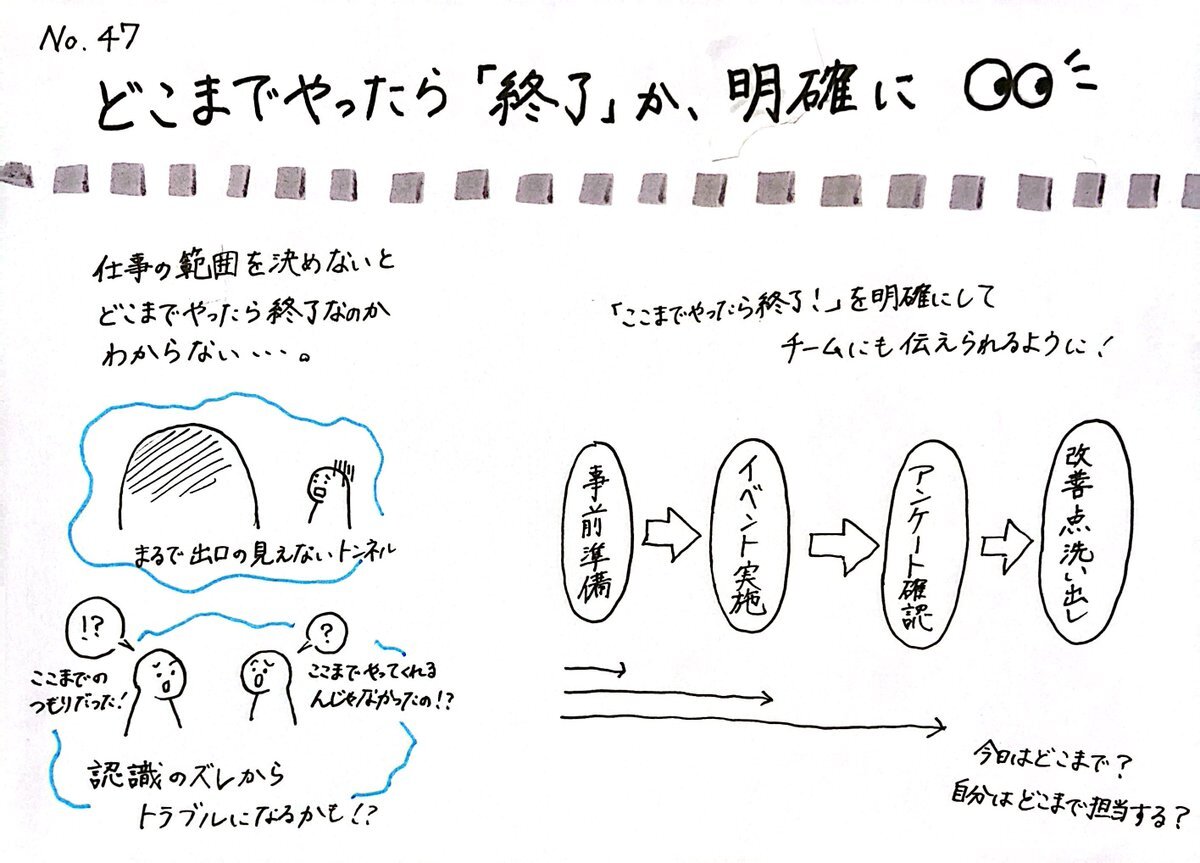 No. 47
どこまでやったら「終了」か、明確に
仕事の範囲を決めないと
どこまでやったら終了なのか
わからない・・・。
まるで出口の見えないトンネル
!?
ここまでの
つもりだった!
?
ここまでやってくれる
んじゃなかったの!?
認識のズレから
トラブルになるかも!?
「ここまでやったら終了!」を明確にして
チームにも伝えられるように!
事前準備
イベント実施
アンケート確認
改善点洗い出し
今日はどこまで?
自分はどこまで担当する?